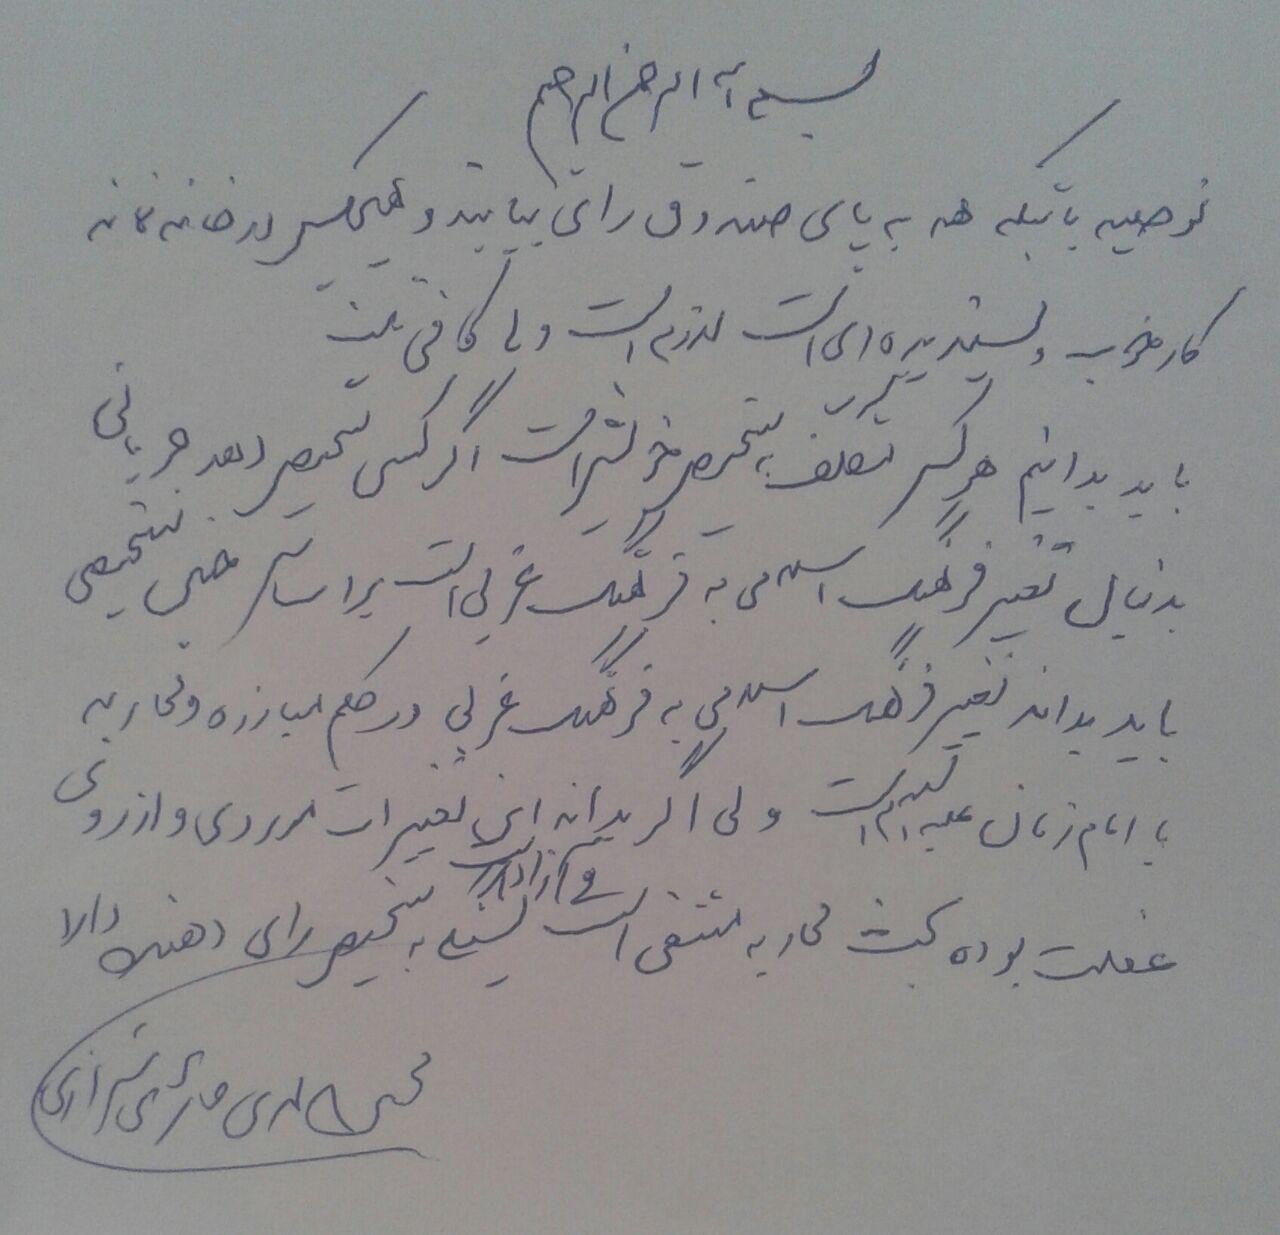 بسم الله الرحمن الرحیم
توصیه باینکه همه به پای صندوق رأی بیایند و هیچکس در خانه نماند
کار خوب و پسندیده ای است لازم است ولی کافی نیست
باید بدانیم هر کس مکلف به تشخیص خویش است اگر کسی تشخیص دهد جریانی
بدنبال تغییر فرهنگ اسلامی به فرهنگ غربی است براساس چنین تشخیصی
باید بداند تغییر فرهنگ اسلامی به فرهنگ غربی در حکم مبارزه و محاربه
با امام زمان علیه السلام است ولی اگر بداند این تغییرات موردی و از روی
غفلت بوده بحث محاربه منتفی است بستگی به تشخیص رأی دهنده دارد
محی الدین حائری شیرازی